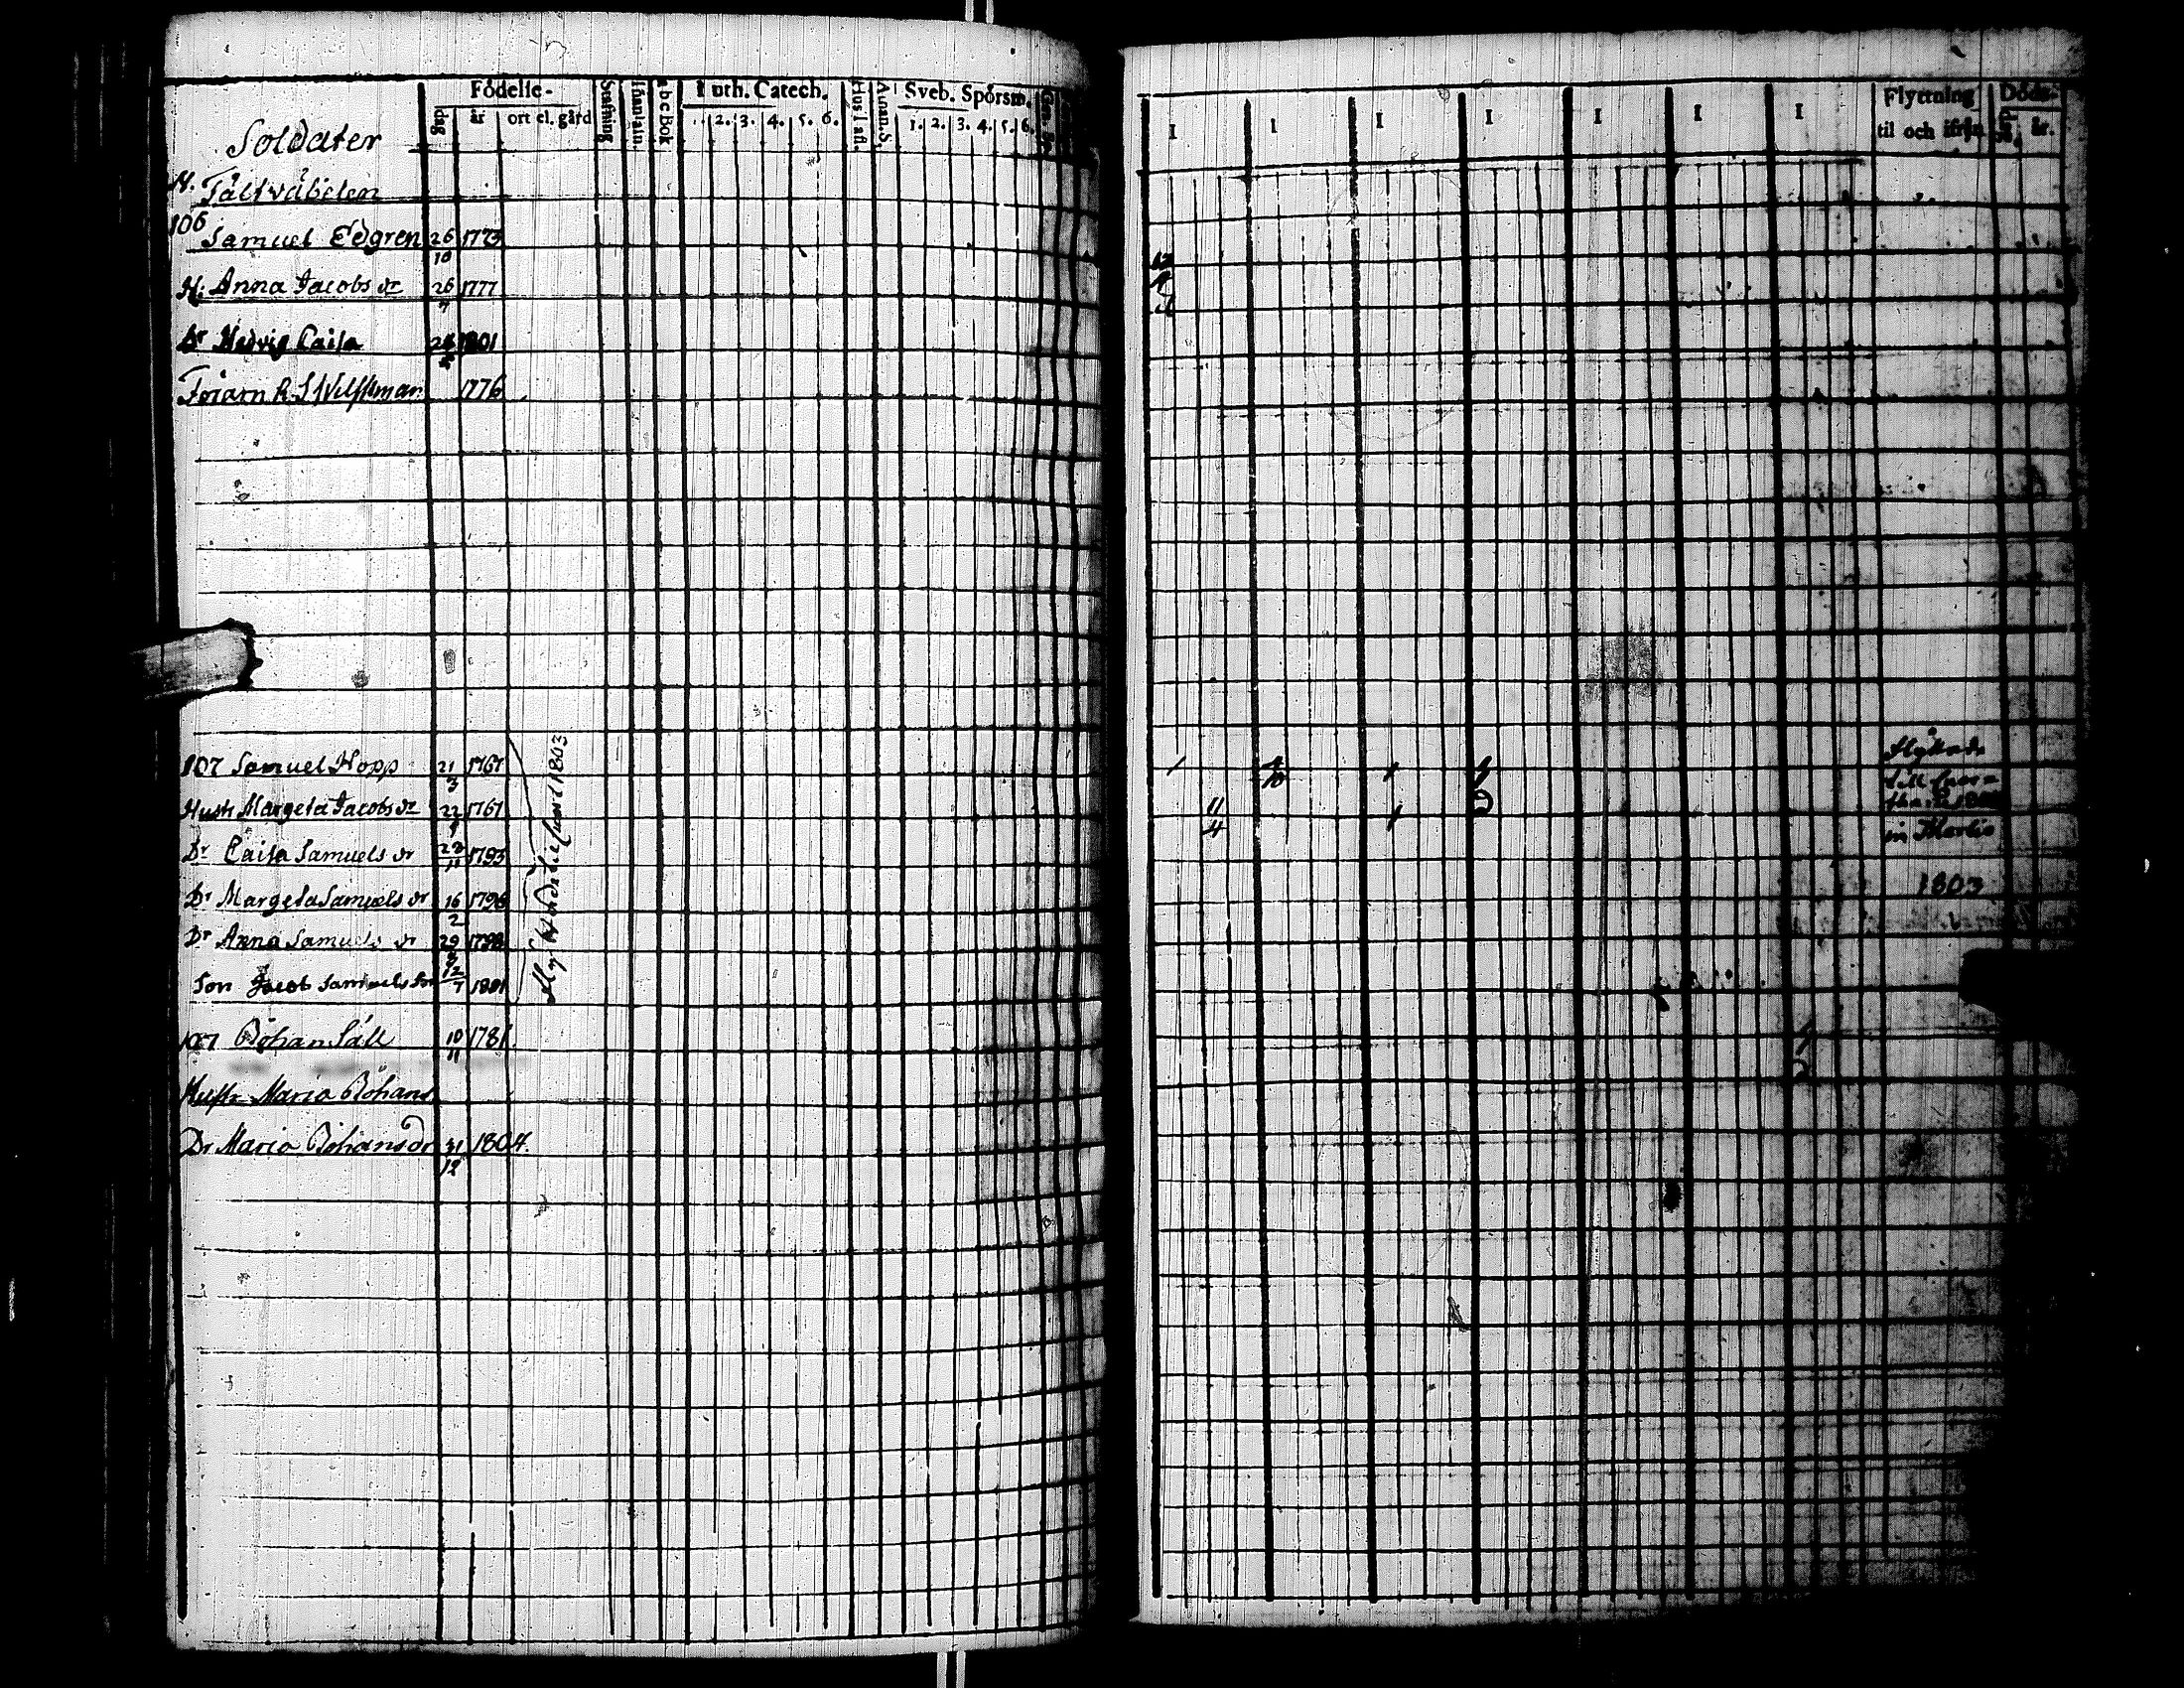 Födelse-
dag år ort el. gård
Stafning
Innantäin
a b c Bok
Luth. Catech.
2. 3. 4. 5. 6.
Hus T afl.
Athan. S.
Sveb. Spörsm.
1. 2. 3. 4. 5. 6.
Soldater
N. Fältväbelen
106 Samuel Edgren 26/10 1773
H. Anna Jacobs dr 26/7 1777
Dr Hedvig Caisa 24 1801
1776
107 Samuel Hopp 21/3 1767
Hustr Margeta Jacobs dr 22 1767
Dr Caisa Samuels dr 22/11 1793
Dr Margeta Samuels dr 16/2 1796
Dr Anna Samuels dr 29 1798
Son Jacob Samuels Son 12/7 1801
1803
107 Johan Säll 10/11 1781
Hustr Maria Johans
Dr Maria Johans dr 31/12 1804.
I I I I I I I
Flyttning
til och ifrån
Döds-
år.
11
4
Flyttade
till
in Martio
1803